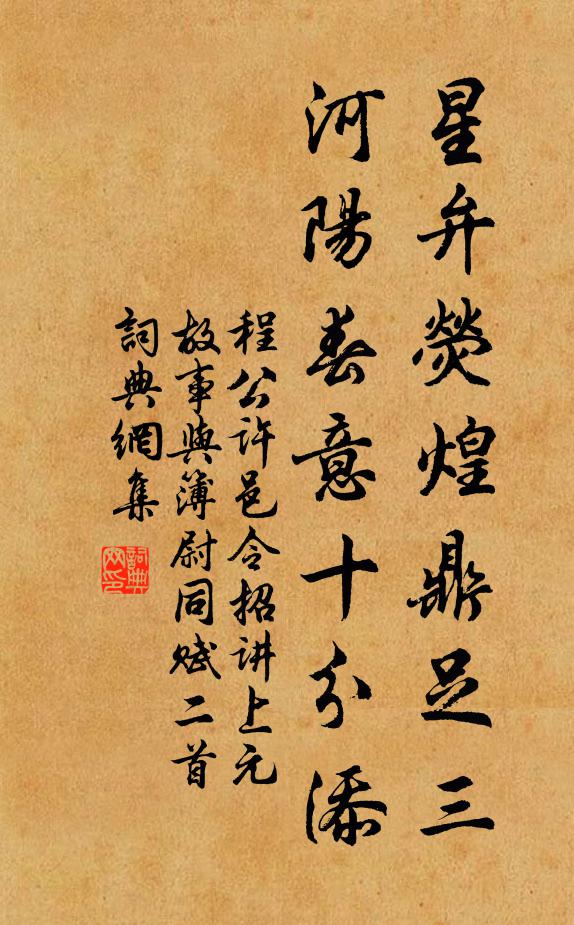 星弁熒煌鼎足三
河陽春意十分添
程公許邑令招讲上元
故事與簿尉同賦二首
詞典網集
詞典网印